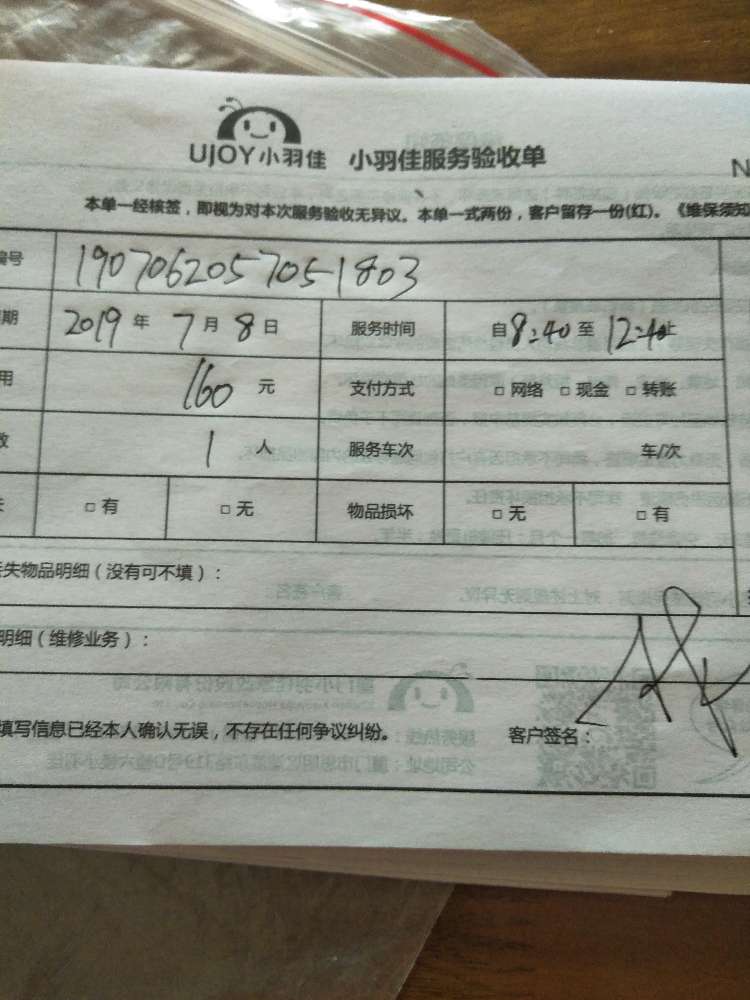 UJOY小羽佳 小羽佳服务验收单
N
本单一经核签，即视为对本次服务验收无异议。本单一式两份，客户留存一份(红)。《维保须知
编号 1907062057051803
期 2019年7月8日 服务时间 自8:40至12:40止
用 160元 支付方式 □网络 □现金 □转账
数 1人 服务车次 车/次
失 □有 □无 物品损坏 □无 □有
丢失物品明细（没有可不填）：
明细（维修业务）：
填写信息已经本人确认无误，不存在任何争议纠纷。 客户签名：